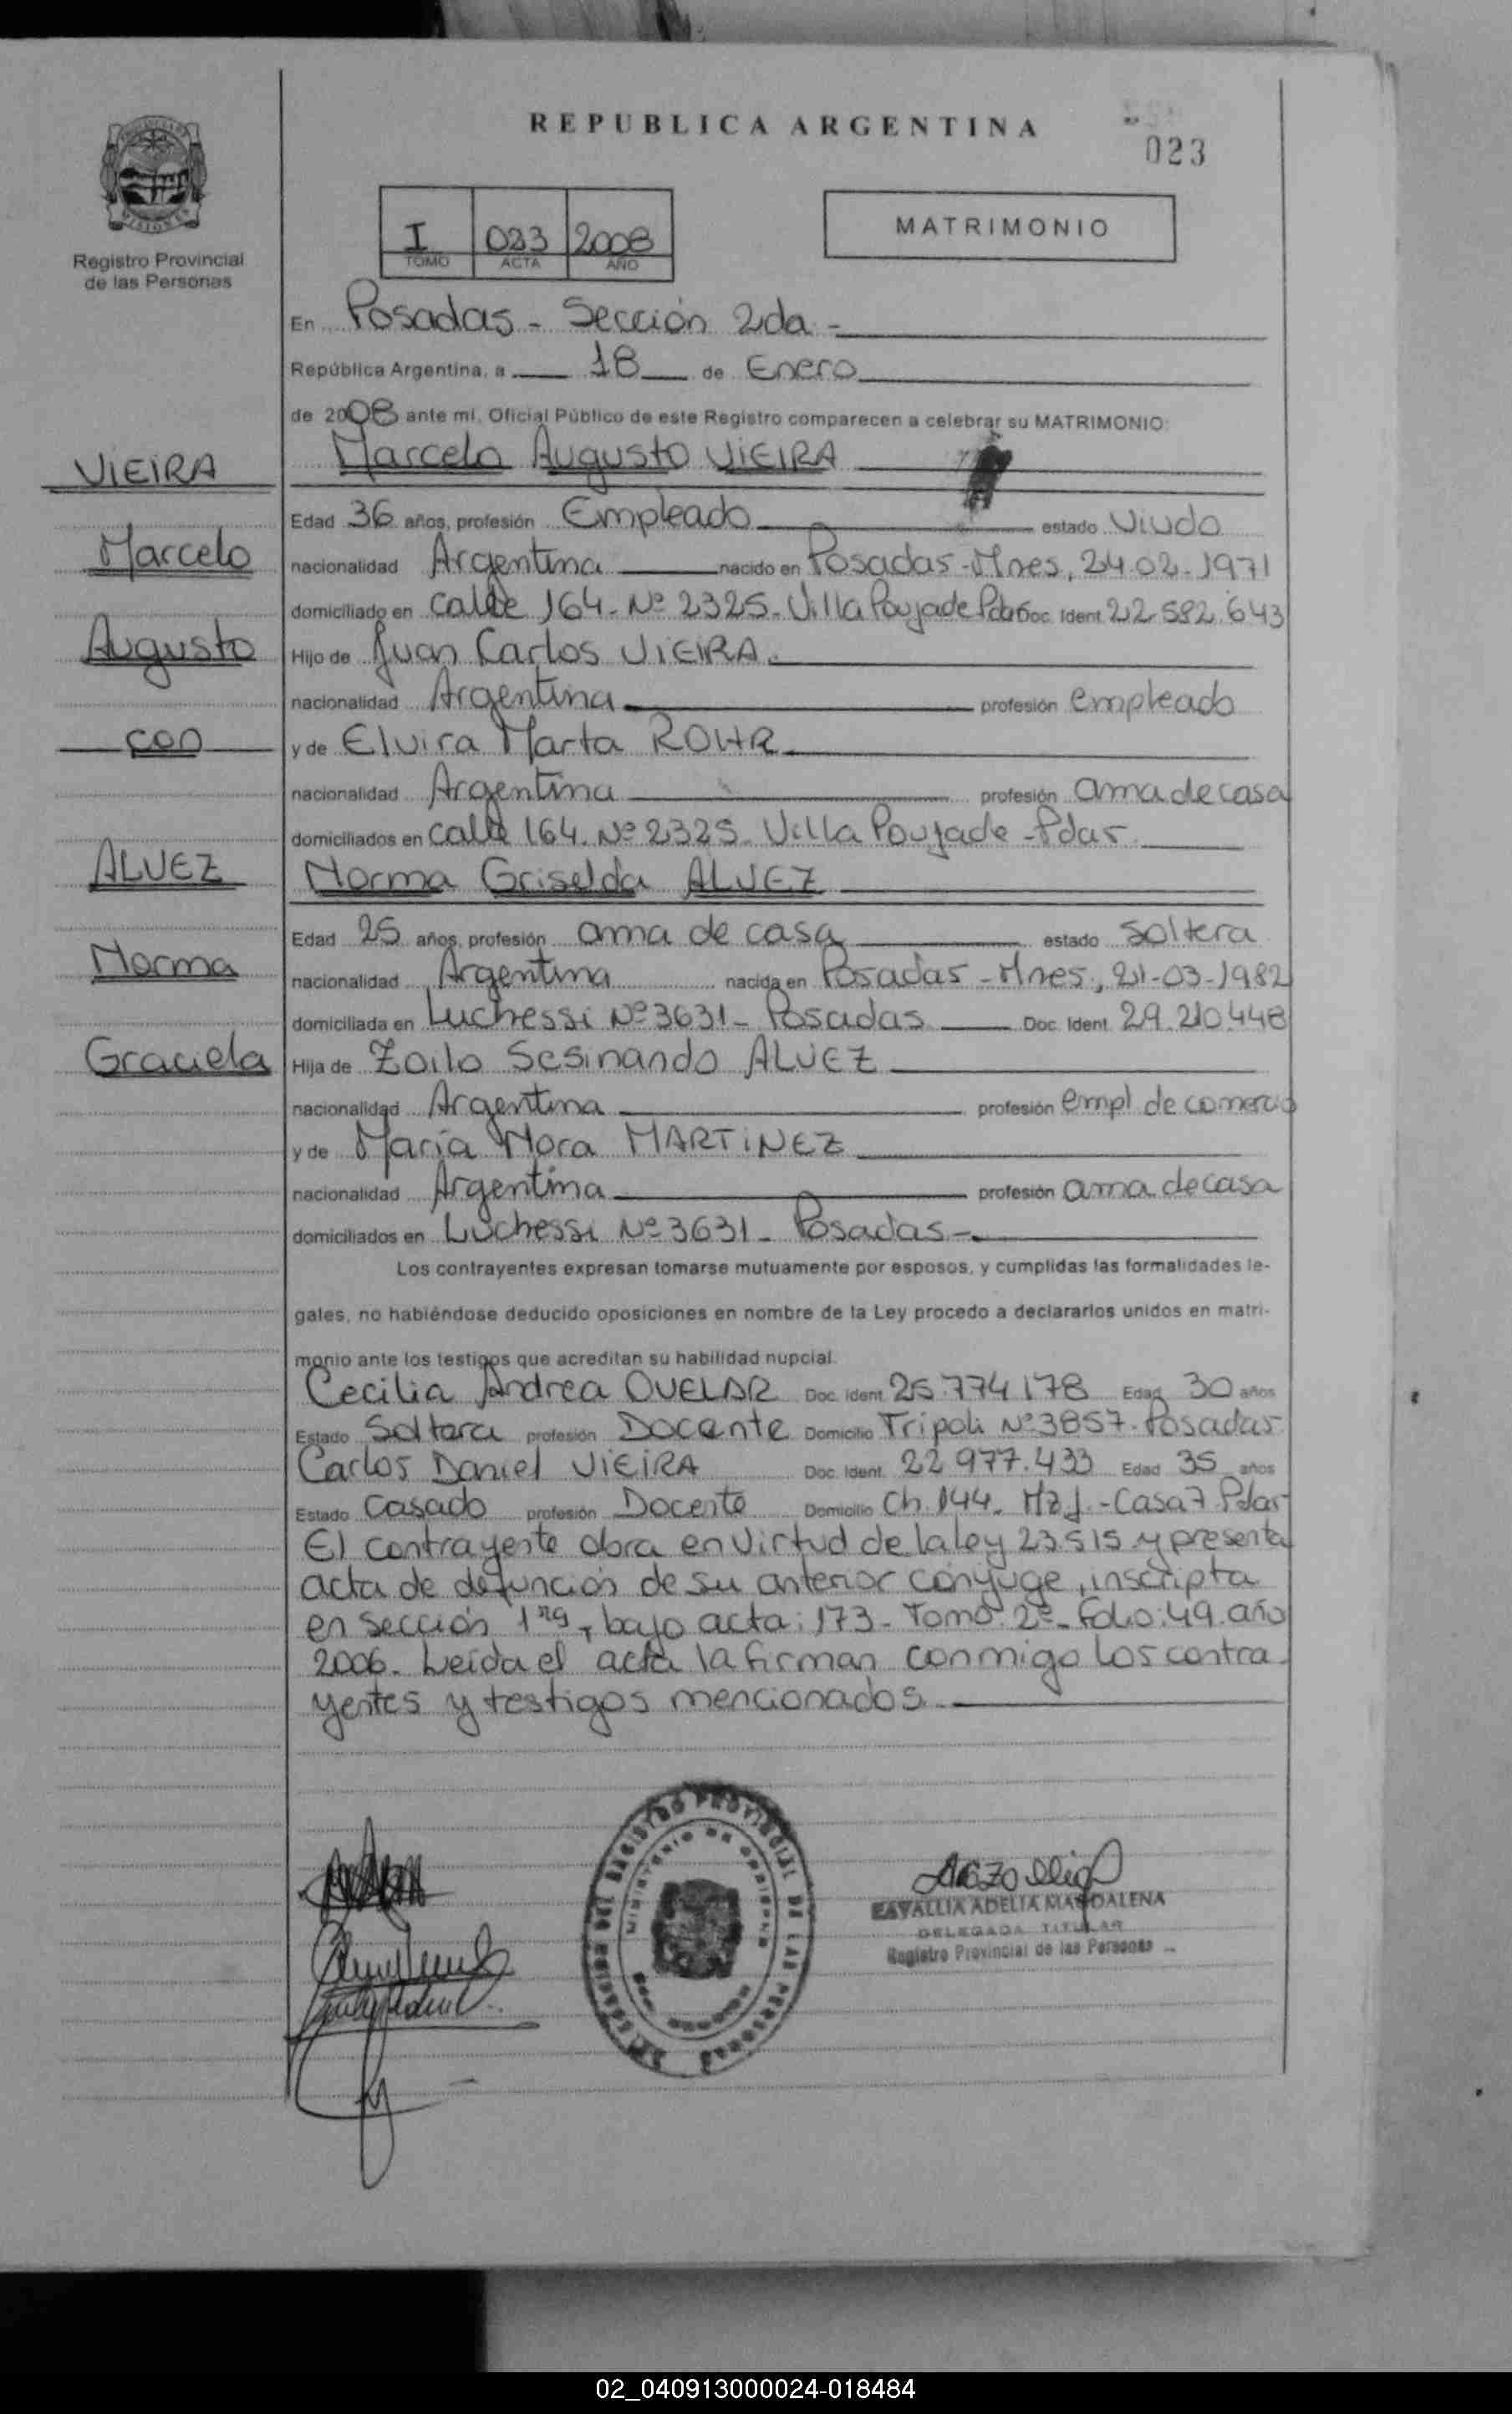 REPUBLICA ARGENTINA
023
Registro Provincial
de las Personas
I 023 2008
TOMO ACTA AÑO
MATRIMONIO
En Posadas - Sección 2da -
República Argentina, a 18 de Enero
de 2008 ante mi, Oficial Público de este Registro comparecen a celebrar su MATRIMONIO:
Marcelo Augusto VIEIRA
VIEIRA
Marcelo
Augusto
con
ALVEZ
Norma
Graciela
Edad 36 años, profesión Empleado estado Viudo
nacionalidad Argentina nacido en Posadas-Mnes, 24.02-1971
domiciliado en calle 164-Nº 2325-Villa Poujade Pdas Doc. Ident. 22.582.643
Hijo de Juan Carlos VIEIRA.
nacionalidad Argentina profesión empleado
y de Elvira Marta ROHR
nacionalidad Argentina profesión ama de casa
domiciliados en calle 164. Nº 2325- Villa Poujade-Pdas.
Norma Griselda ALVEZ
Edad 25 años, profesión ama de casa estado soltera
nacionalidad Argentina nacida en Posadas-Mnes, 21-03-1982
domiciliada en Luchessi Nº 3631- Posadas Doc. Ident. 29.210.448
Hija de Zoilo Sesinando ALVEZ
nacionalidad Argentina profesión empl de comercio
y de María Nora MARTINEZ
nacionalidad Argentina profesión ama de casa
domiciliados en Luchessi Nº 3631- Posadas-.
Los contrayentes expresan tomarse mutuamente por esposos, y cumplidas las formalidades le-
gales, no habiéndose deducido oposiciones en nombre de la Ley procedo a declararlos unidos en matri-
monio ante los testigos que acreditan su habilidad nupcial.
Cecilia Andrea OVELAR Doc. Ident. 25.774.178 Edad 30 años
Estado Soltera profesión Docente Domicilio Tripoli Nº 3857-Posadas
Carlos Daniel VIEIRA Doc. Ident. 22.977.433 Edad 35 años
Estado Casado profesión Docente Domicilio Ch. 144. Mz J.-Casa 7 Pdas-
El contrayente obra en virtud de la ley 23.515 y presenta
acta de defunción de su anterior conyuge, inscripta
en sección 1ra, bajo acta: 173- Tomo: 2º- Folio: 49. año
2006. Leída el acta la firman conmigo los contra-
yentes y testigos mencionados
REGISTRO PROVINCIAL DE LAS PERSONAS
MINISTERIO DE GOBIERNO
ADELIA MAGDALENA
DELEGADA TITULAR
Registro Provincial de las Personas
02_040913000024-018484